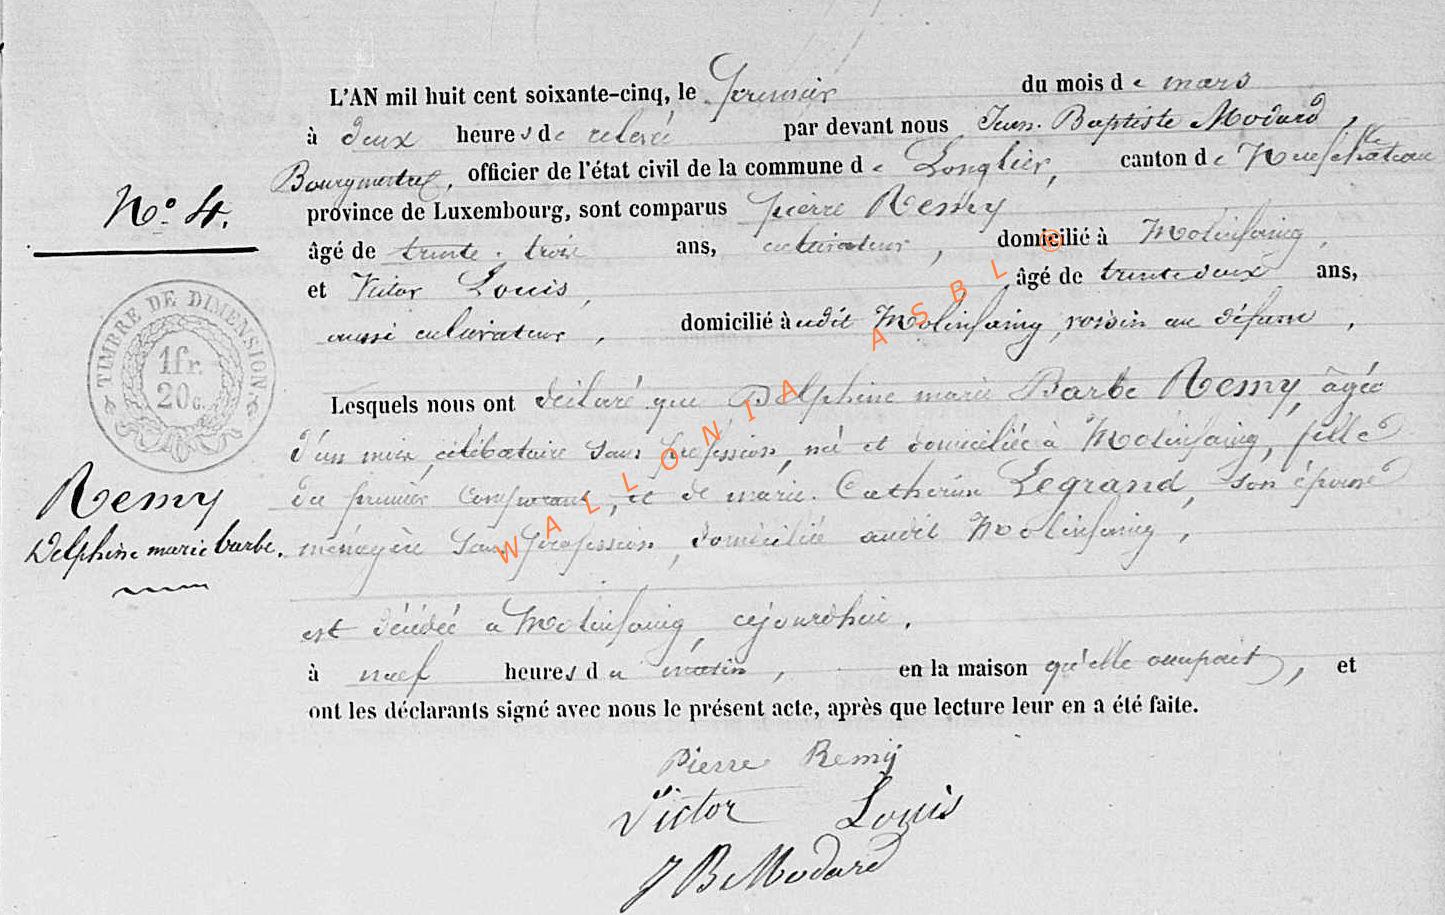 L'AN mil huit cent soixante-cinq, le Premier du mois de mars
à deux heures de relevé par devant nous Jean-Baptiste Modard,
Bourgmestre, officier de l'état civil de la commune de Longlier, canton de Neufchâteau
N° 4.
province de Luxembourg, sont comparus pierre Remy
âgé de trente-trois ans, cultivateur, domicilié à Molinfaing,
et Victor Louis, âgé de trente deux ans,
aussi cultivateur, domicilié audit Molinfaing, voisin au défunt,
TIMBRE DE DIMENSION
1 fr.
20 c.
Lesquels nous ont déclaré que Delphine marie Barbe Remy, âgée
d'un mois, célibataire sans profession, né et domiciliée à Molinfaing, fille
du premier Comparant, et de marie-Catherine Legrand, son épouse
Remy
Delphine marie barbe.
ménagère sans profession, domiciliée audit Molinfaing,
est décédée à Molinfaing, cejourd'hui,
à neuf heures du matin, en la maison qu'elle occupait, et
ont les déclarants signé avec nous le présent acte, après que lecture leur en a été faite.
Pierre Remy
Victor Louis
J B Modard
WALLONIA ASBL ©